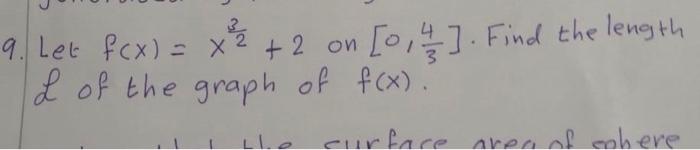 9. Let f(x) = x^{3/2} + 2 on [0, 4/3]. Find the length
L of the graph of f(x).
the surface area of sphere